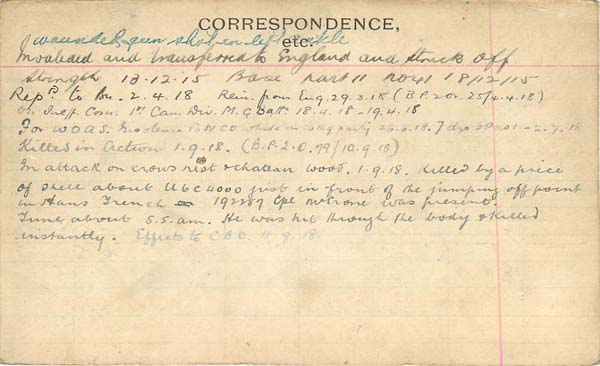 CORRESPONDENCE,
etc.
wounded gun shot in left ankle
Invalided and transferred to England and Struck Off
Strength 13-12-15 Base Part 11 18/12/15
Rep.d to Bn. 2.4.18 Rein. from Eng. 29.3.18 (B.P.2 Or. 25/4.4.18)
1st Can. Div. M.G. Batt. 18.4.18 - 19.4.18
For W.O.A.S. Insolence to NCO while on party 7 dys 2.7.18
Killed in Action 1.9.18. (B.P.2.O.99/10.9.18)
In attack on crows nest & chateau wood. 1.9.18. Killed by a piece
of shell about U6C4000 just in front of the jumping off point
in Hans Trench 192289 Cpl McCrone was present.
Time about 5.5. am. He was hit through the body & killed
instantly. Effects to C.B.O. 11.9.18.